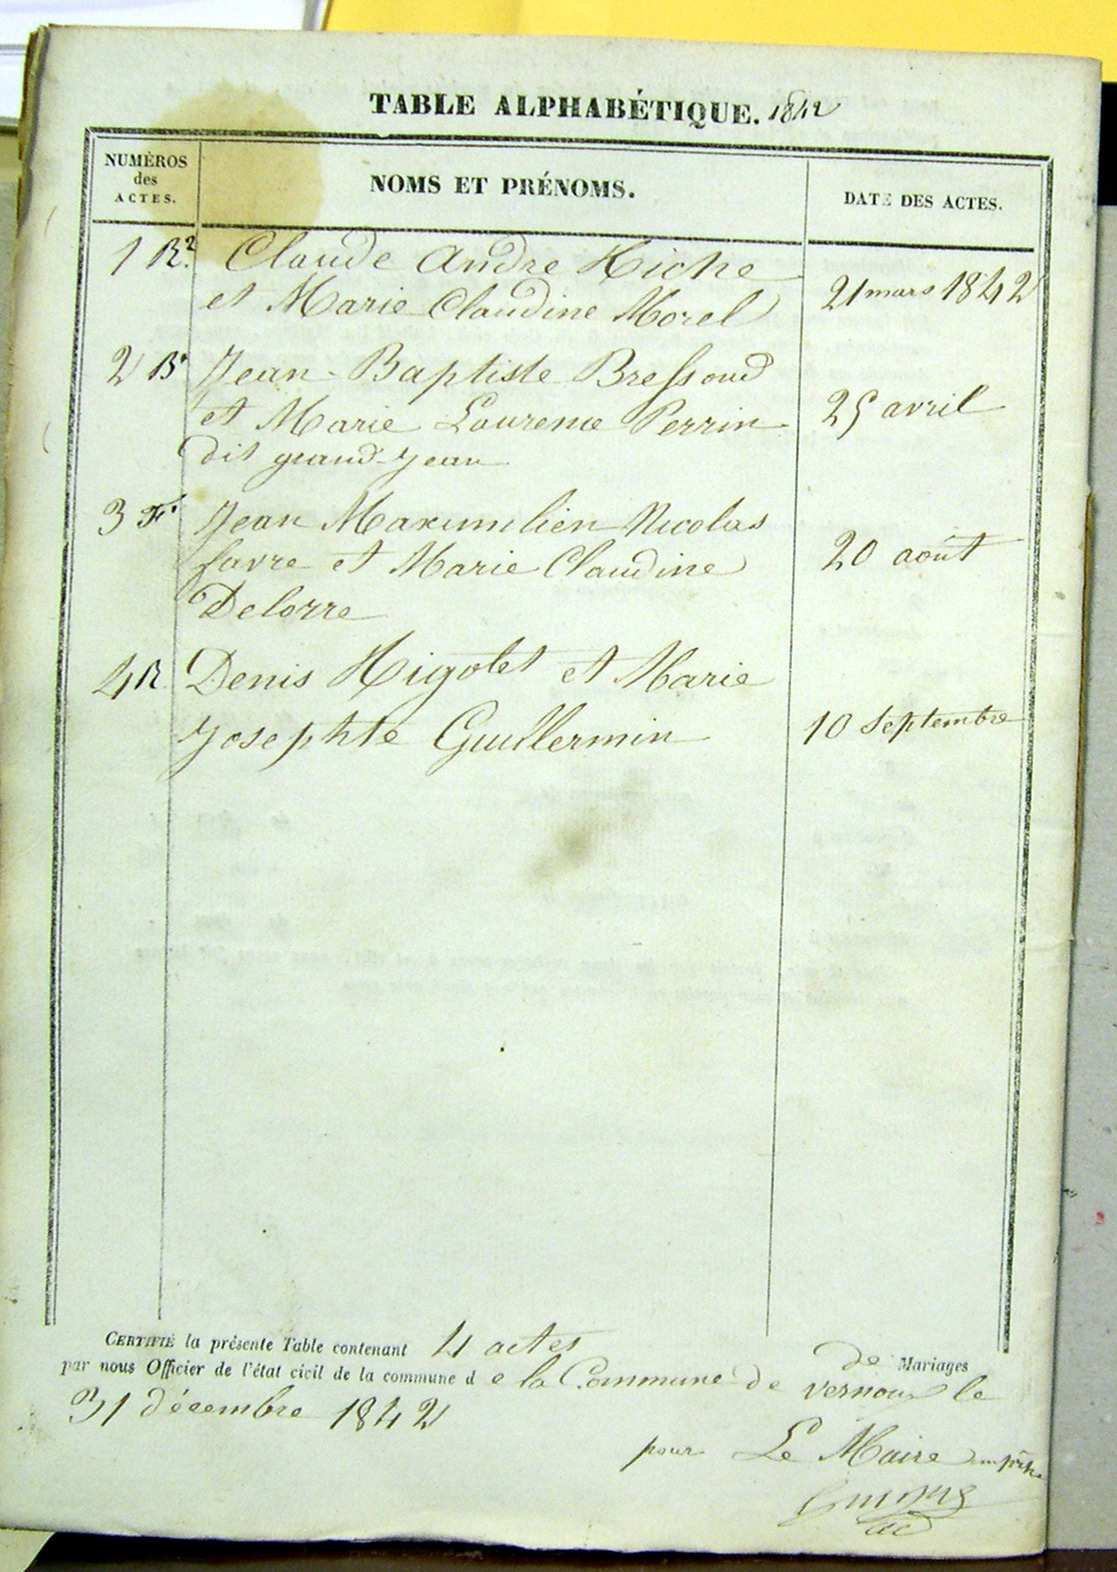 TABLE ALPHABÉTIQUE. 1842
NUMÉROS
des
ACTES.
NOMS ET PRÉNOMS.
DATE DES ACTES.
1 R. Claude andre Riche
et Marie Claudine Morel
21 mars 1842
2 B. Jean-Baptiste Bressoud
et Marie Laurence Perrin
dit grand-jean
25 avril
3 F. Jean Maximilien Nicolas
favre et Marie Claudine
Delorre
20 août
4 R. Denis Rigolet et Marie
Josephte Guillermin
10 Septembre
CERTIFIÉ la présente Table contenant 4 actes
de Mariages
par nous Officier de l'état civil de la commune d e la Commune de vernoux le
31 décembre 1842
pour Le Maire